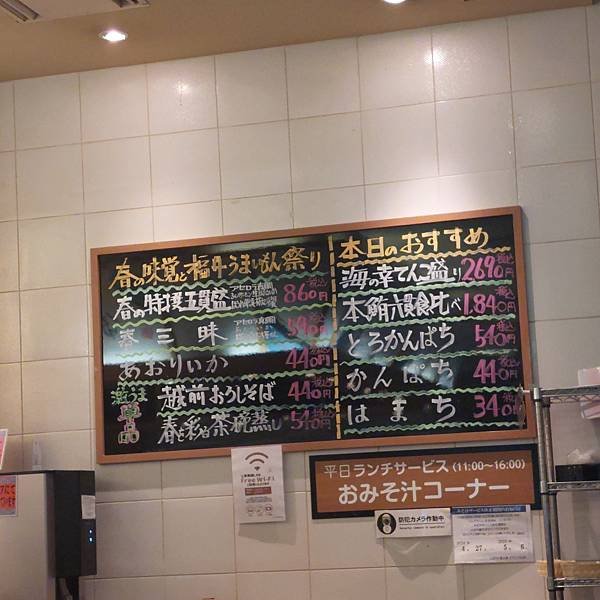 春の味覚と福井うまいもん祭り
春の特撰五貫盛
860円 税込
春三昧
590円 税込
あおりいか
440円 税込
激うま
越前おろしそば
440円 税込
春の彩り茶碗蒸し
540円 税込
本日のおすすめ
海の幸てんこ盛り
2690円 税込
本鮪六貫食比べ
1,840円 税込
とろかんぱち
540円 税込
かんぱち
440円 税込
はまち
340円 税込
Free Wi-Fi
平日ランチサービス(11:00～16:00)
おみそ汁コーナー
防犯カメラ作動中
4. 27. 5. 6.